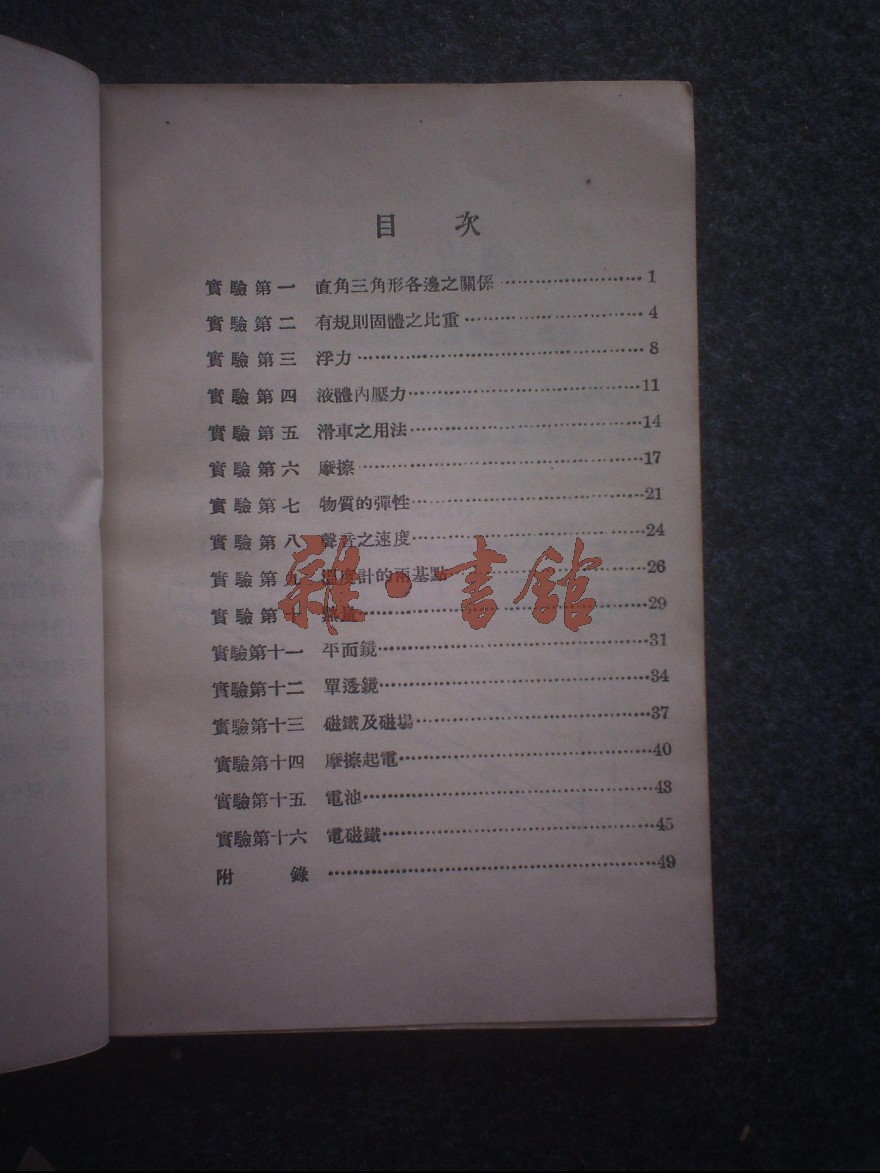 目 次
實驗第一 直角三角形各邊之關係……………………1
實驗第二 有規則固體之比重……………………4
實驗第三 浮力……………………8
實驗第四 液體內壓力……………………11
實驗第五 滑車之用法……………………14
實驗第六 摩擦……………………17
實驗第七 物質的彈性……………………21
實驗第八 聲音之速度……………………24
實驗第九 溫度計的兩基點……………………26
實驗第十……………………29
實驗第十一 平面鏡……………………31
實驗第十二 單透鏡……………………34
實驗第十三 磁鐵及磁場……………………37
實驗第十四 摩擦起電……………………40
實驗第十五 電池……………………43
實驗第十六 電磁鐵……………………45
附 錄……………………49
雜·書館